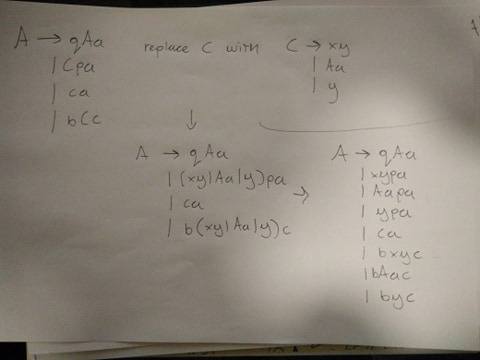 A → qAa
| Cpa
| ca
| bCc
replace C with
C → xy
| Aa
| y
↓
A → qAa
| (xy|Aa|y)pa
| ca
| b(xy|Aa|y)c
→
A → qAa
| xypa
| Aapa
| ypa
| ca
| bxyc
| bAac
| byc